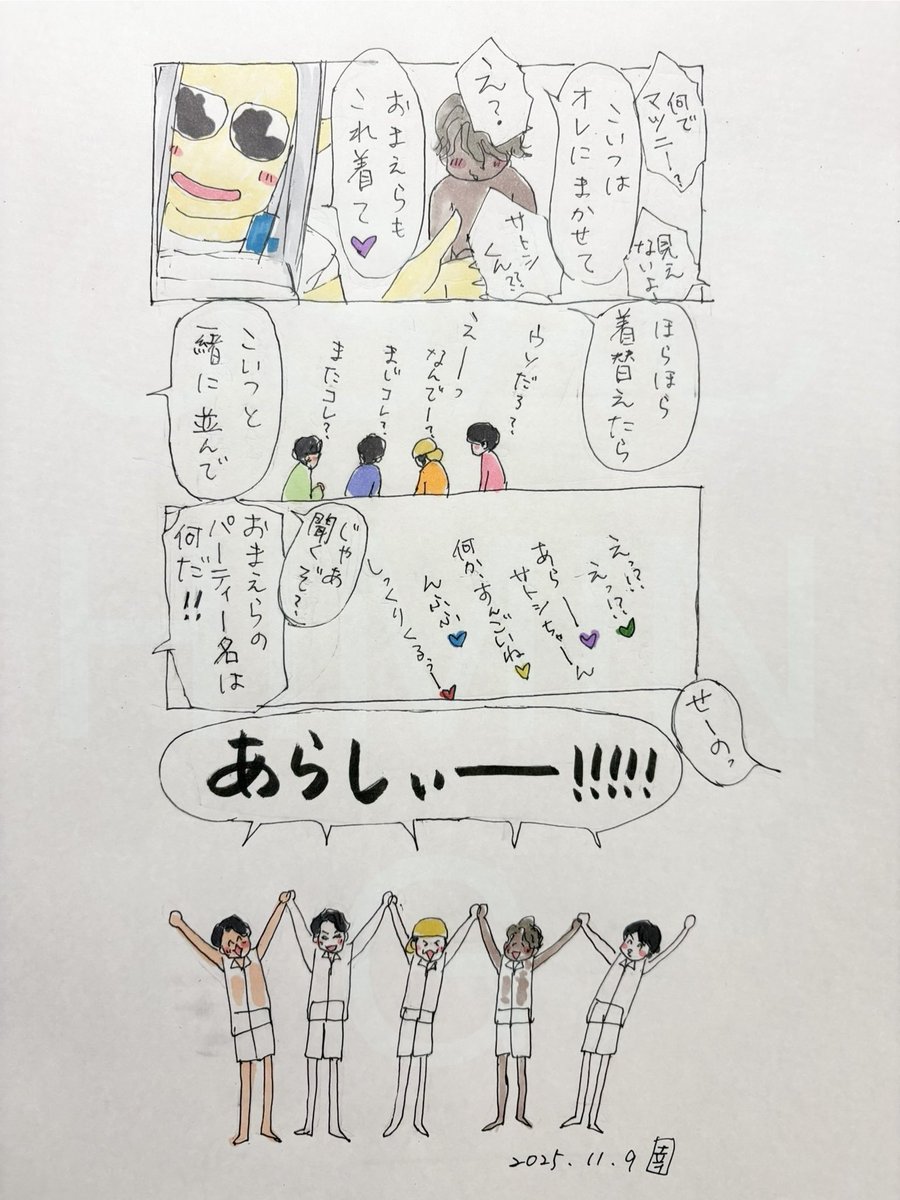 何で
マツニー?
見え
ないよ
こいつは
オレにまかせて
え?
サトシ
くん??
おまえらも
これ着て
ほらほら
着替えたら
ウソだろ?
えーーっ
なんでー?
まじコレ?
またコレ?
こいつと
一緒に並んで
えっ!?
えっ!?
あらーー
サトシちゃーん
何か、すんごいね
んふふ
しっくりくるぅー
じゃあ
聞くぞ?
おまえらの
パーティー名は
何だ!!
せーのっ
あらしぃーー!!!!!
2025.11.9